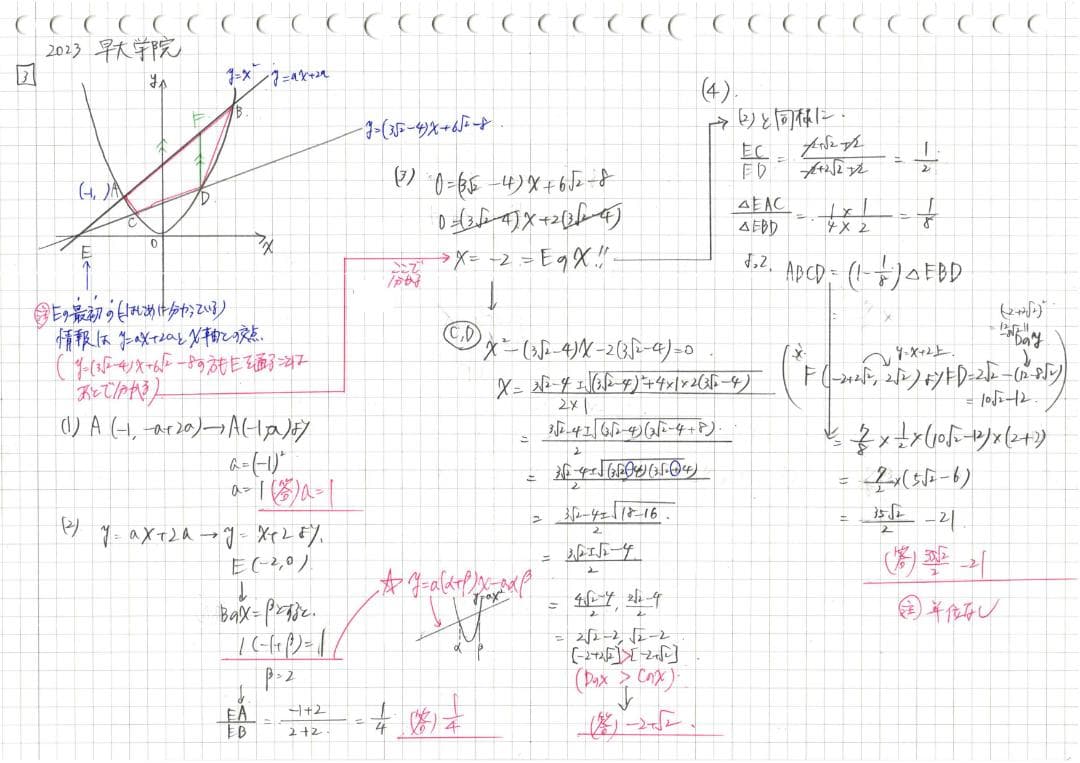 2023 早大学院
3
y
y=x²
y=ax+2a
B
F
y=(3√2-4)x+6√2-8
(-1, )A
D
C
E
O
x
注 Eの最初の(はじめに分かっている)
情報は y=ax+2aとx軸との交点.
( y=(3√2-4)x+6√2-8の方もEを通ることは
あとで分かる)
ここで
分かる
(1) A (-1, -a+2a) → A(-1,a)より
a=(-1)²
a=1 (答) a=1
(2) y=ax+2a → y=x+2より,
E(-2,0)
↓
Bのx=βとすると,
1(-1+β)=1
β=2
↓
EA/EB = (-1+2)/(2+2) = 1/4 (答) 1/4
☆ y=a(α+β)x-aαβ
y=ax²
α
β
(3) 0=(3√2-4)x+6√2-8
0=(3√2-4)x+2(3√2-4)
x=-2=Eのx!!
↓
C,D
x²-(3√2-4)x-2(3√2-4)=0
x=(3√2-4±√((3√2-4)²+4×1×2(3√2-4)))/(2×1)
=(3√2-4±√((3√2-4)(3√2-4+8)))/2
=(3√2-4±√((3√2-4)(3√2+4)))/2
=(3√2-4±√(18-16))/2
=(3√2±√2-4)/2
=(4√2-4)/2, (2√2-4)/2
=2√2-2, √2-2
[-2+2√2]>[-2+√2]
(Dのx > Cのx)
↓
(答) -2+√2.
(4).
(2)と同様に.
EC/ED = (-2+√2-(-2))/(-2+2√2-(-2)) = 1/2
△EAC/△EBD = (1×1)/(4×2) = 1/8
よって, ABCD=(1-1/8)△EBD
(-2+2√2)²
=12-8√2=
Dのy
y=x+2上
F(-2+2√2, 2√2)よりFD=2√2-(12-8√2)
=10√2-12.
=7/8×1/2×(10√2-12)×(2+2)
=7/2×(5√2-6)
=35√2/2-21
(答) 35√2/2-21
注 単位なし